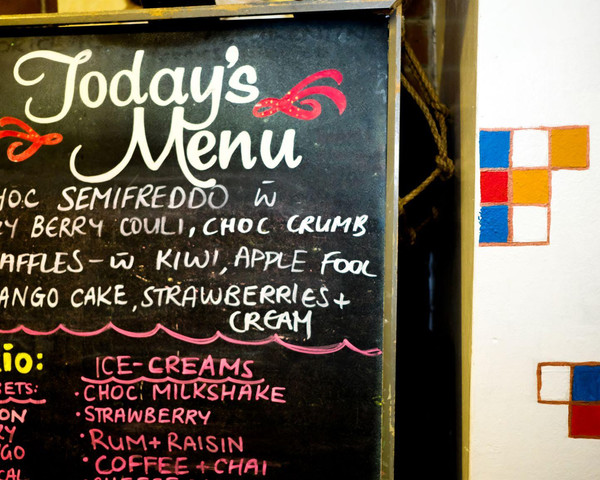 Today's
Menu
HOC SEMIFREDDO w̄
RY BERRY COULI, CHOC CRUMB
AFFLES - w̄ KIWI, APPLE FOOL
ANGO CAKE, STRAWBERRIES +
CREAM
io:
ICE-CREAMS
BETS:
• CHOC MILKSHAKE
ON
• STRAWBERRY
RY
• RUM + RAISIN
NGO
• COFFEE + CHAI